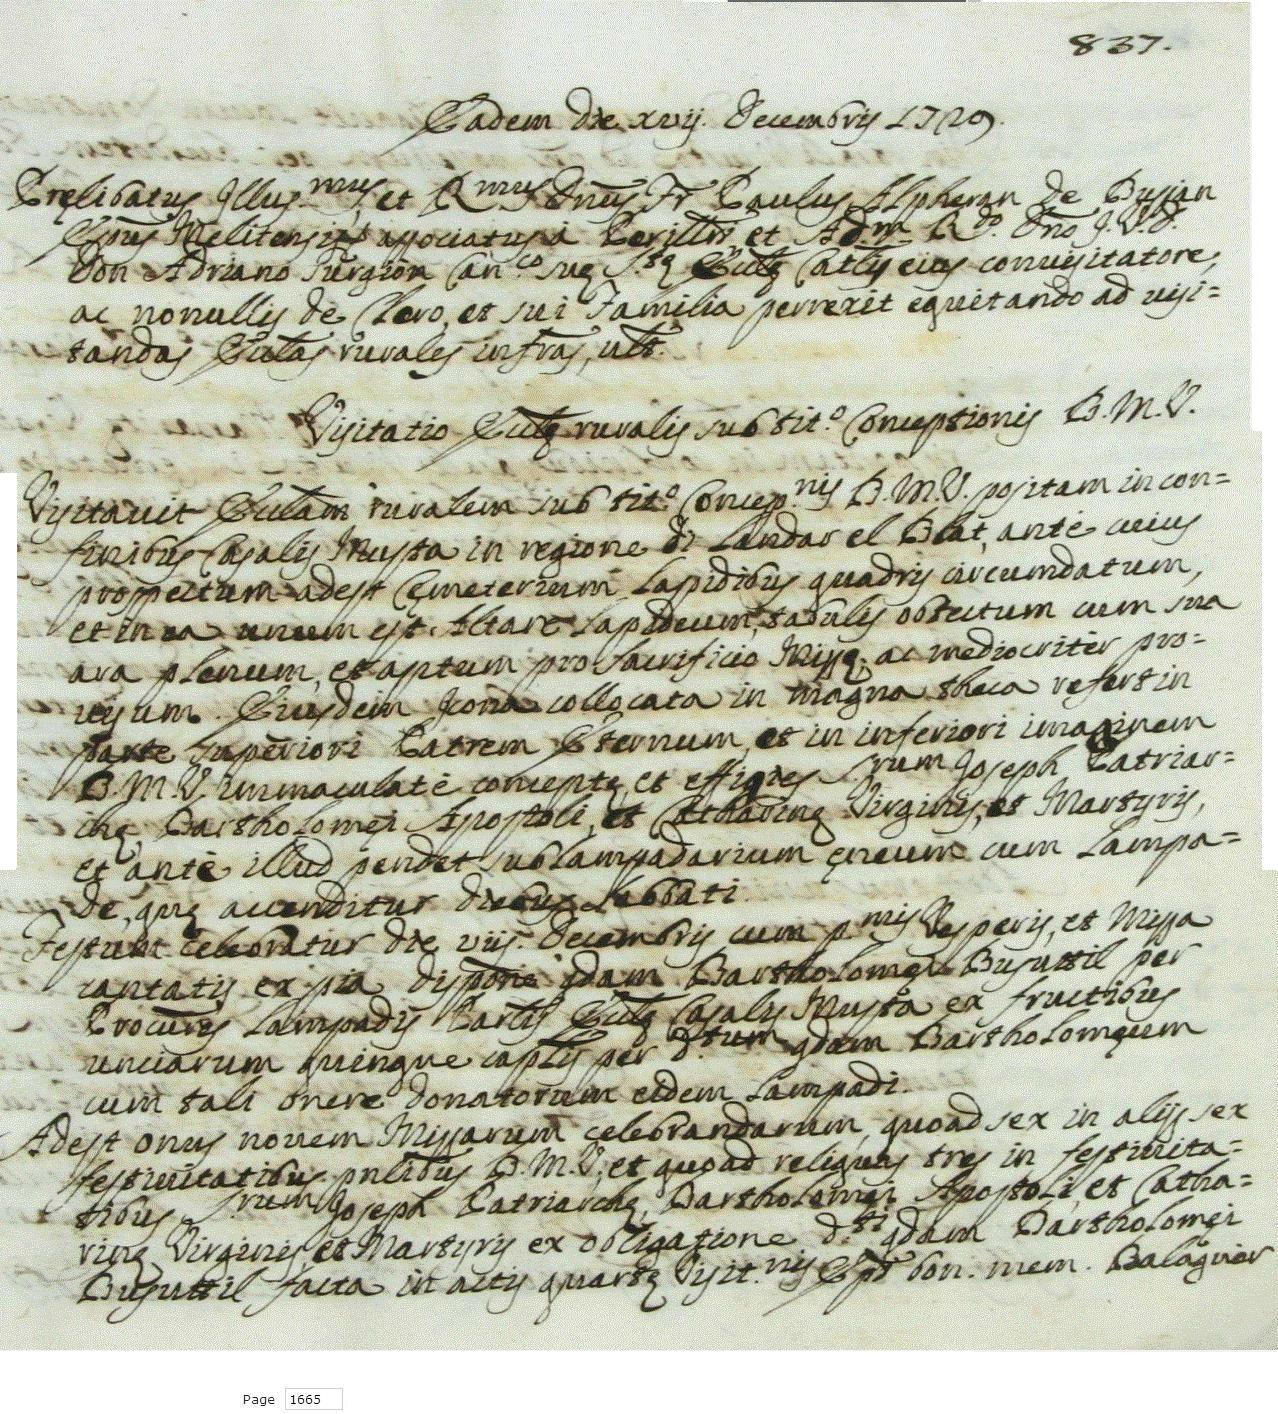 837.
Eadem die xvij. Decembris 1729.
Prelibatus Illus.mus, et Rmus Dnus Fr. Paulus Alpheran de Bussan
Epus Melitensis associatus à Perillri, et Adm. Rdo. Dno J.V.D.
Don Adriano Turgion Can.co suę S.tę Ecclę Catlis eius convisitatore,
ac nonullis de Clero, et sui Familia perrexit equitando ad visi=
tandas Eccłas rurales infras, vłt.
Visitatio Ecclę ruralis sub tit.o Conceptionis B.M.V.
Visitavit Ecclam ruralem sub tit.o Concep.nis B.M.V. positam in con=
finibus Casalis Musta in regione di Landar el Blat, ante cuius
prospectum adest Cęmeterium Lapidibus quadris circumdatum,
et in ea unum est Altare Lapideum, tabulis obtectum cum sua
ara plenum, et aptum pro Sacrificio Missę, ac mediocriter pro=
visum. Eiusdem Icona collocata in magna theca refert in
parte superiori Patrem Ęternum, et in inferiori imaginem
B.M.V. immaculatè conceptę, et effigies Srum Joseph Patriar=
chę, Bartholomęi Apostoli, et Catharinę Virginis, et Martyris,
et ante illud pendet sublampadarium ęreum cum Lampa=
de, quę accenditur diebus Sabbati.
Festum celebratur die viij. Decembris cum pmis Vesperis, et Missa
cantatis ex pia disponè qdam Bartholomęi Busuttil per
Procures Lampadis Parlis Ecclę Casalis Musta ex fructibus
unciarum quinque captis per d.tum qdam Bartholomęum
cum tali onere donatorum eidem Lampadi.
Adest onus novem Missarum celebrandarum, quoad sex in alijs sex
festivitatibus pnlibus B.M.V., et quoad reliquas tres in festivita=
tibus Srum Joseph Patriarchę, Bartholomęi Apostoli, et Catha=
rinę Virginis, et Martyris ex obligatione d.ti qdam Bartholomęi
Busuttil facta in actis quartę Visit.nis Epi bon. mem. Balaguer
Page 1665